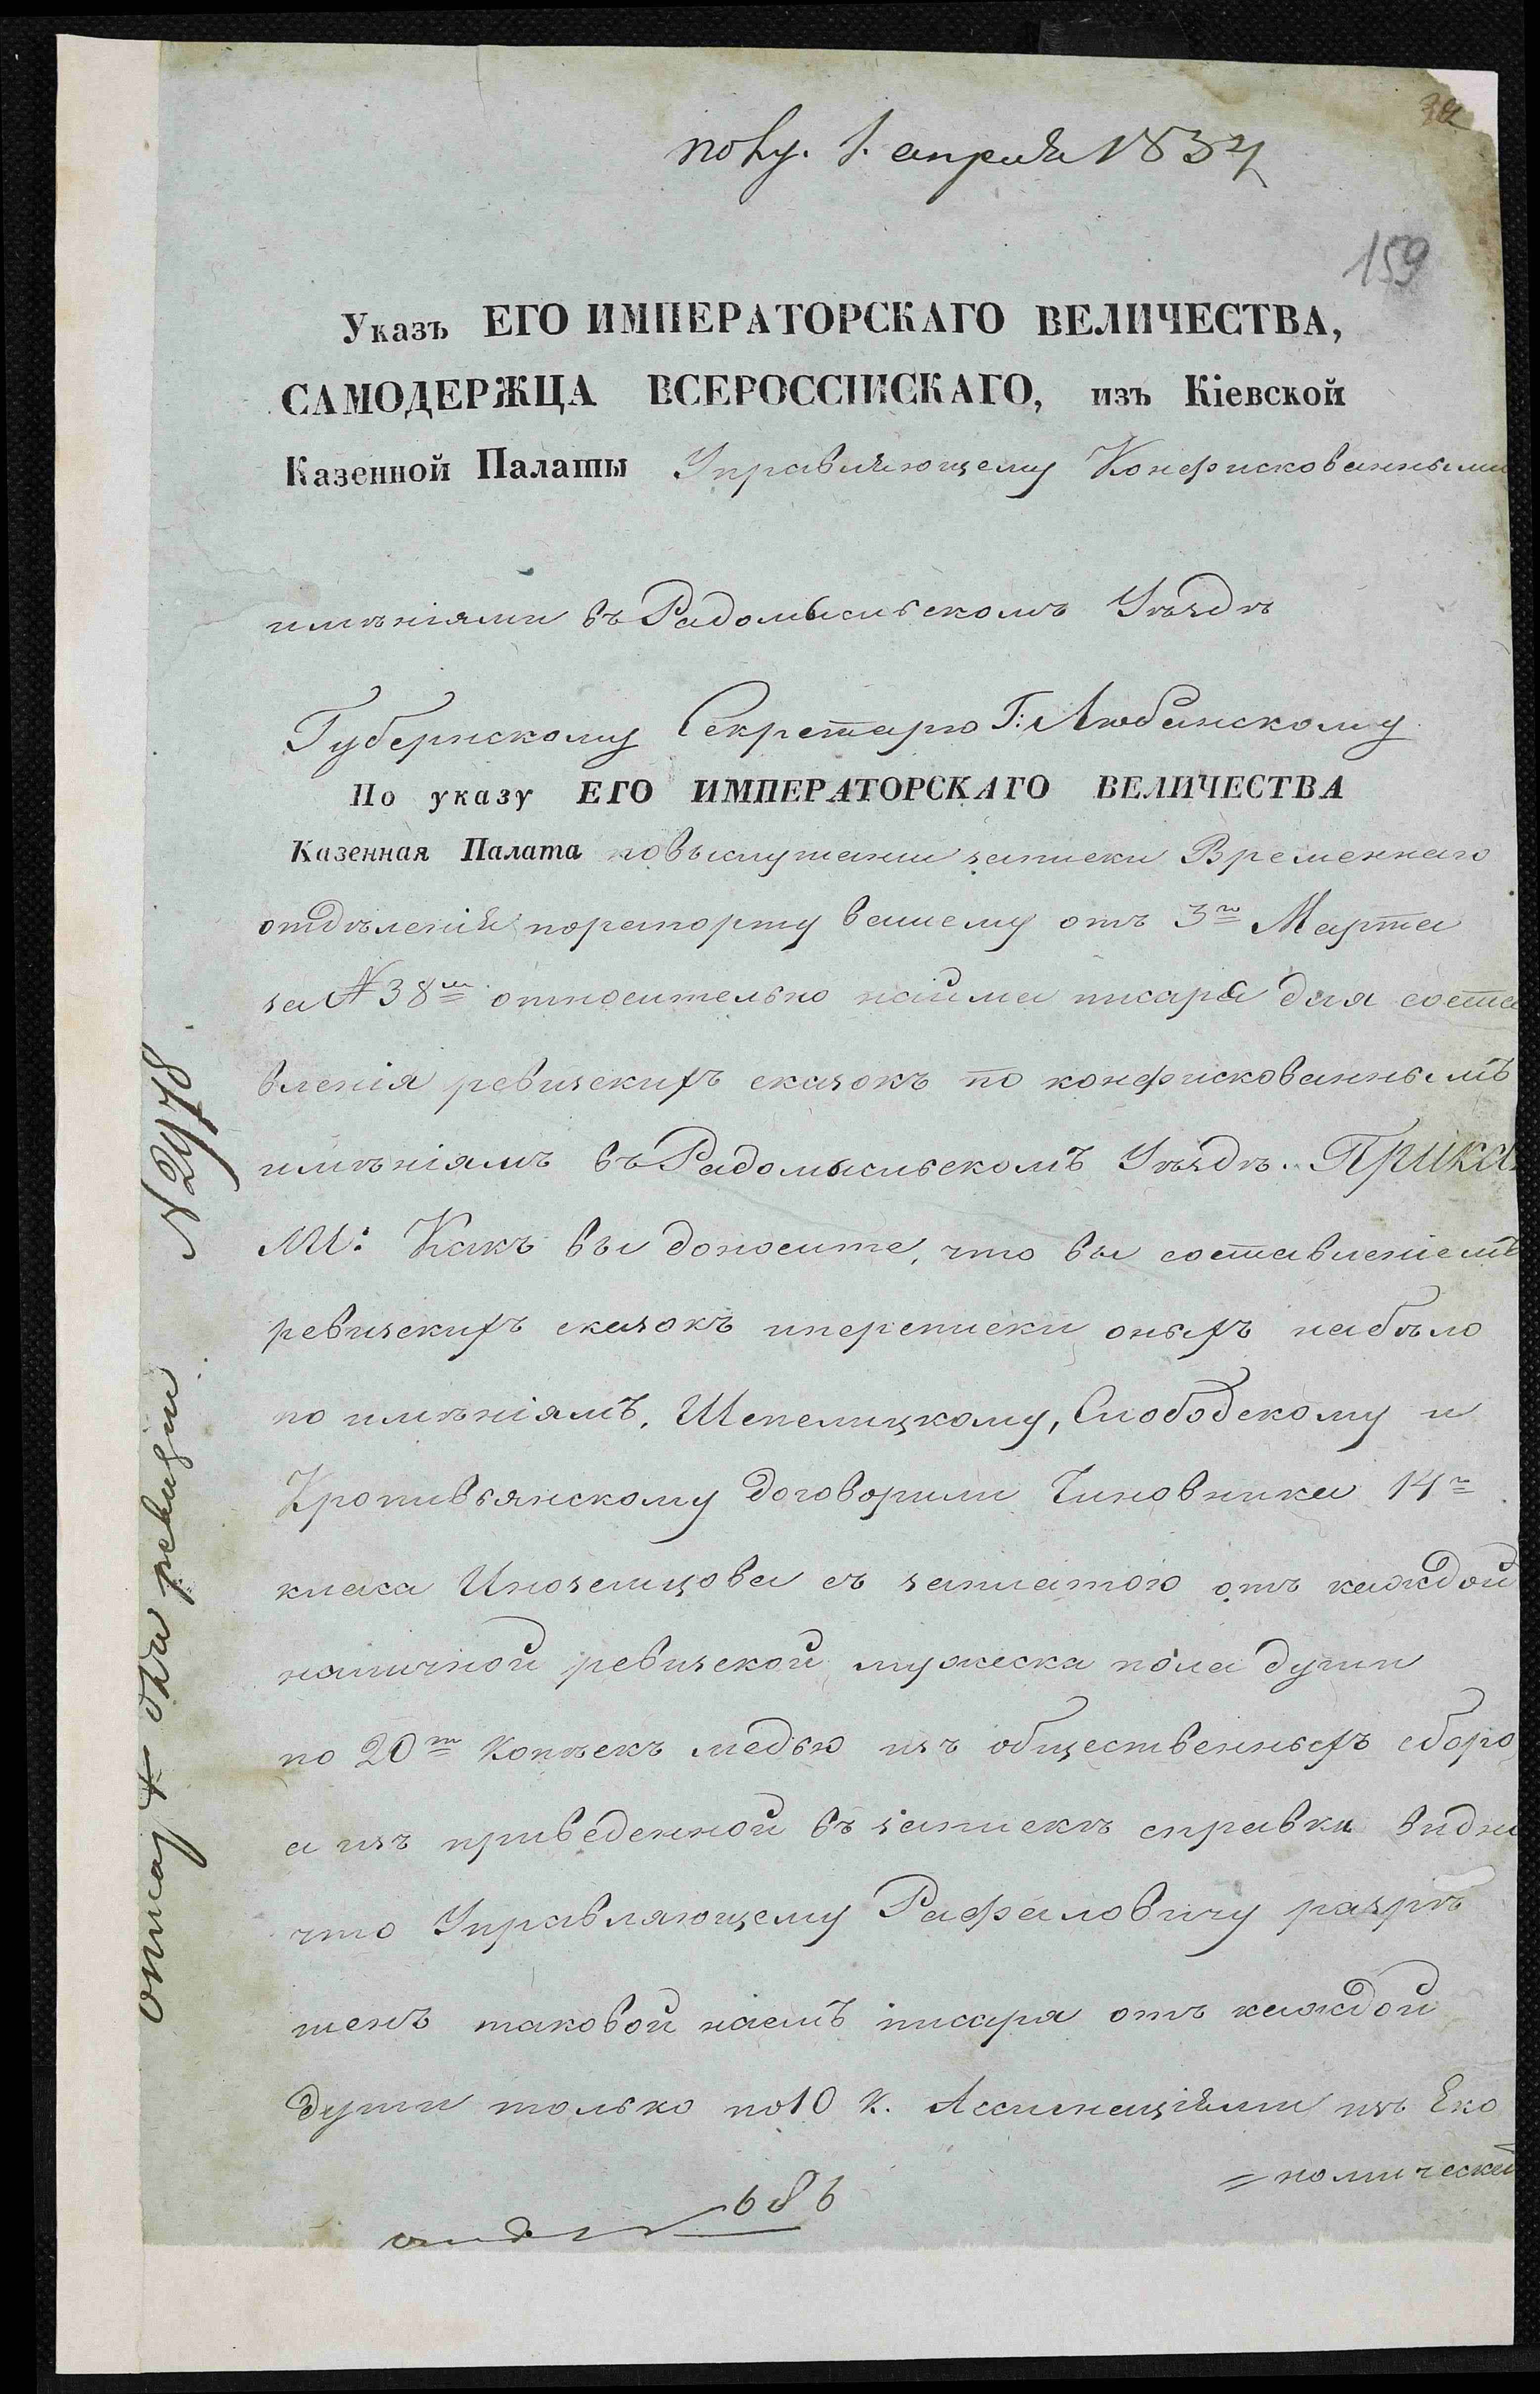 полу. 1. апреля 1834
159
Указъ ЕГО ИМПЕРАТОРСКАГО ВЕЛИЧЕСТВА,
САМОДЕРЖЦА ВСЕРОССІЙСКАГО, изъ Кіевской
Казенной Палаты Управляющему Конфискованными
имѣніями въ Радомысльскомъ Уѣздѣ
Губернскому Секретарю Г: Любанскому
По указу ЕГО ИМПЕРАТОРСКАГО ВЕЛИЧЕСТВА
Казенная Палата по выслушании записки Временнаго
отдѣленія по рапорту вашему отъ 3го Марта
за № 38м относительно найма писара для соста
вленія ревизскихъ сказокъ по конфискованнымъ
имѣніямъ въ Радомысльскомъ Уѣздѣ. Прика
ли: Какъ вы доносите, что вы составленіемъ
ревизскихъ сказокъ и переписки оныхъ набѣло
по имѣніямъ, Шепелицкому, Слободскому и
Кропивьянскому договорили Чиновника 14го
класа Иноземцова съ заплатою отъ каждой
наличной ревизской мужеска пола души
по 20т копѣекъ медью изъ общественныхъ сборо
а изъ приведенной въ запискѣ справки видно
что Управляющему Рафаловичу разрѣ
шенъ таковой наемъ писаря отъ каждой
души только по 10 к. Ассигнаціями изъ Эко
= номически
686
№ 2978
о ревизіи